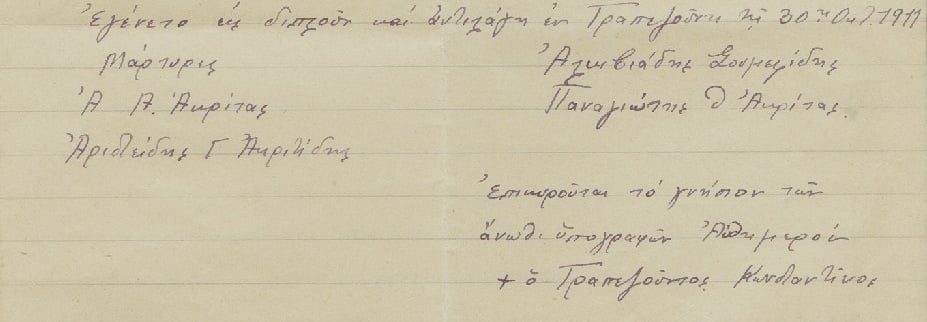 Ἐγένετο εἰς διπλοῦν καί ἀντηλάγη ἐν Τραπεζοῦντι τῇ 30ῃ Ὀκτ. 1911
Μάρτυρες
Ἀλκιβιάδης Σουμελίδης
Ἀ Α. Ἀκρίτας
Παναγιώτης Θ Ἀκρίτας.
Ἀριστείδης Γ Ἀκριτίδης
Ἐπικυροῦται τό γνήσιον τῶν
ἄνωθι ὑπογραφῶν Αὐθημερόν
+ ὁ Τραπεζοῦντος Κωνσταντῖνος